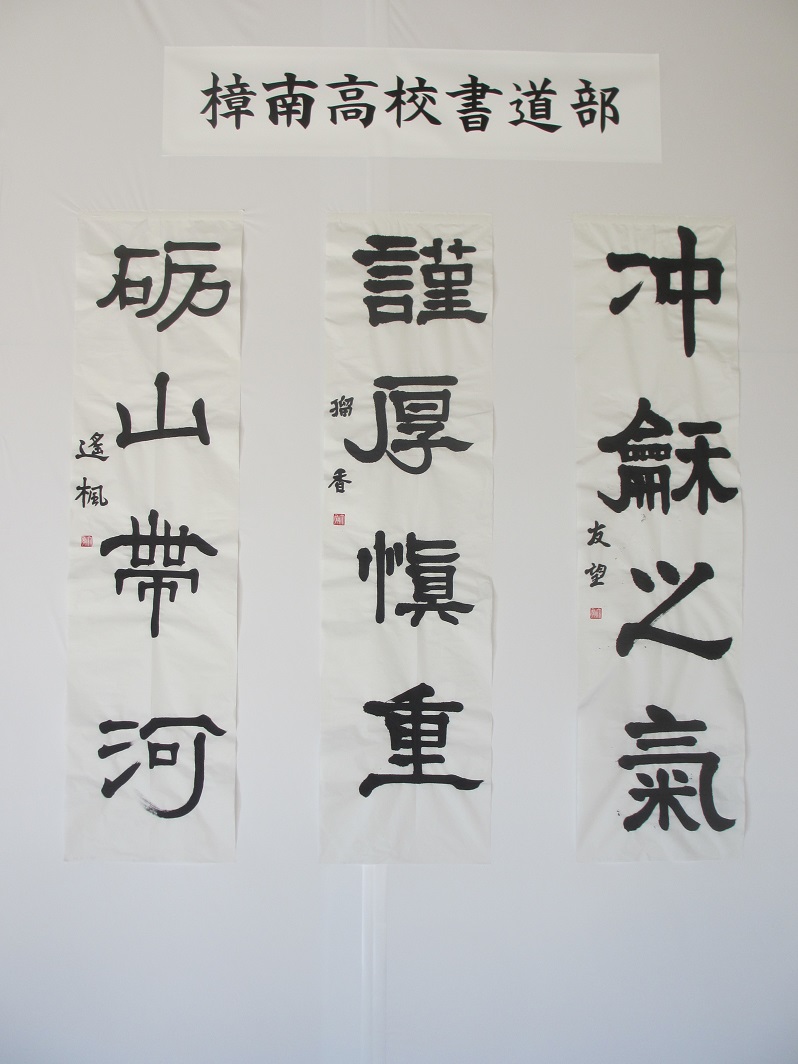 樟南高校書道部
冲龢之氣
友望
謹厚慎重
瑠香
砺山帯河
遙楓